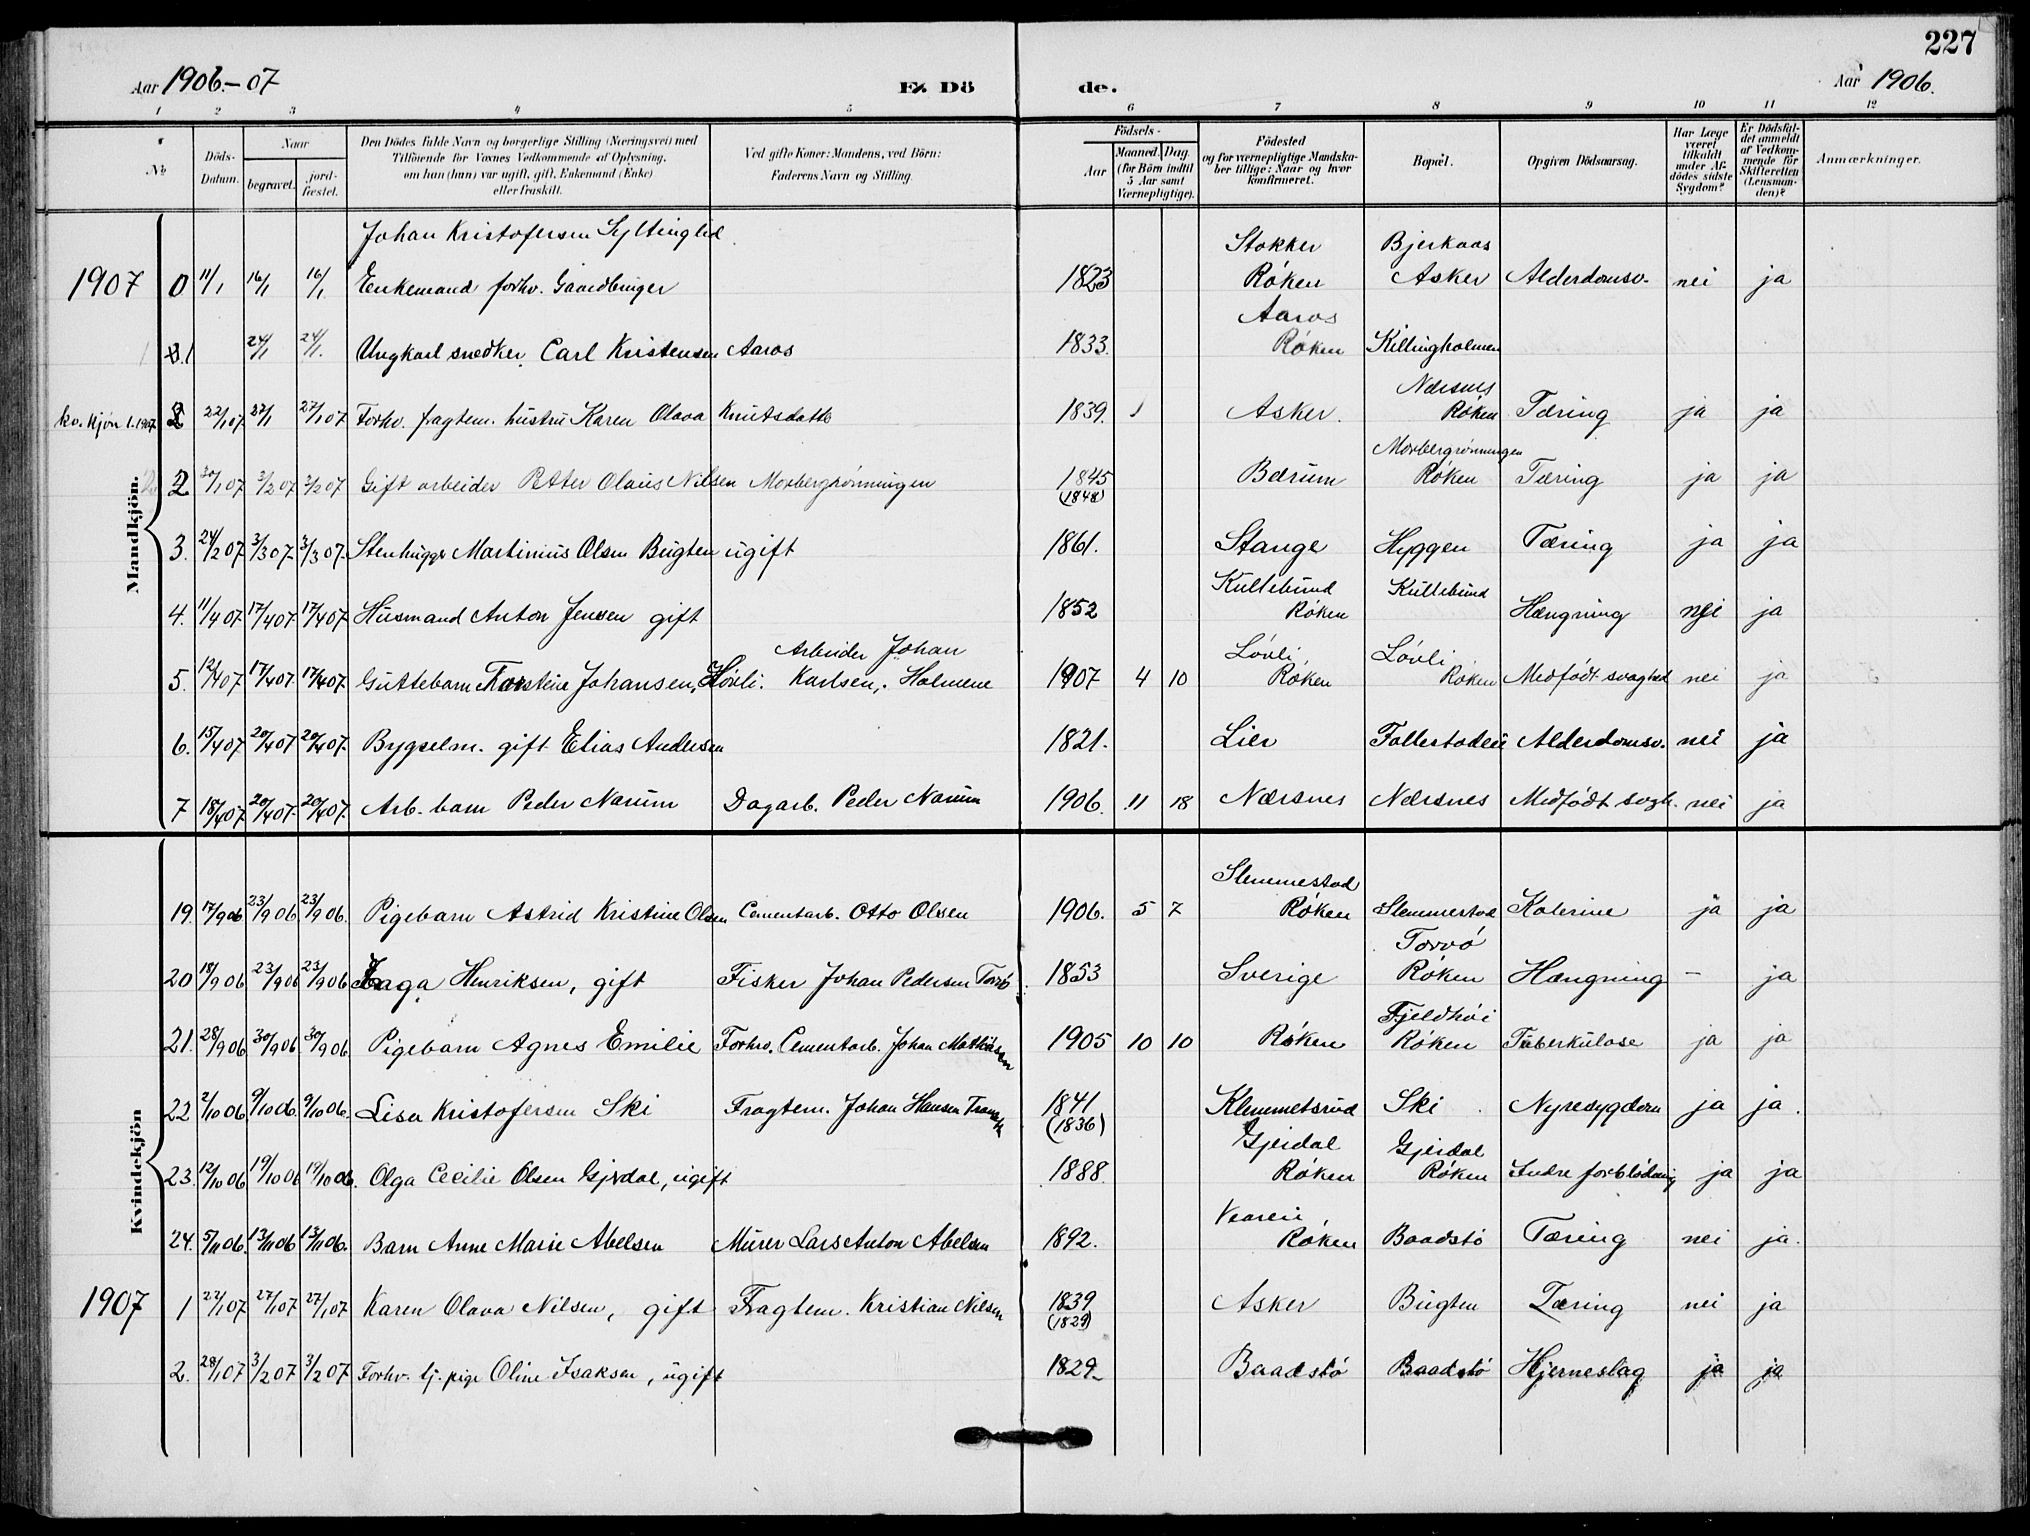 227
Aar 1906.-07
E. Dö de.
Aar 1906.
1 2 3 4 5 6 7 8 9 10 11 12
No
Döds-Datum.
Naar
begravet.
jord-fæstet.
Den Dödes fulde Navn og borgerlige Stilling (Næringsvei) med
Tilföiende for Voxnes Vedkommende af Oplysning,
om han (hun) var ugift, gift, Enkemand (Enke)
eller fraskilt.
Ved gifte Koner: Mandens, ved Börn:
Faderens Navn og Stilling.
Födsels-
Aar
Maaned. Dag
(for Börn indtil
5 Aar samt
Værnepligtige).
Födested
og for værnepligtige Mandska-
ber tillige: Naar og hvor
konfirmeret.
Bopæl.
Opgiven Dödsaarsag.
Har Læge
været
tilkaldt
under Af-
dödes sidste
Sygdom?
Er Dödsfal-
det anmeldt
af Vedkom-
mende for
Skifteretten
(Lensman-
den)?
Anmærkninger.
Mandkjön.
Johan Kristofersen Syltinglid Stokker Bjerkaas
1907 0 11/1 16/1 16/1 Enkemand forhv. Gaardbruger 1823 Röken Asker Aldersdomsv. nei ja
Aaros
1 24/1 24/1. Ungkarl snedker. Carl Kristensen Aaros 1833. Röken Killingholmen
Nærsnes
kv. kjön 1. 1907. 2 22/1 07. 27/1 27/1 07 Forhv. fragtem. hustru Karen Olava Knutsdatte 1839. Asker. Röken Tæring ja ja
Morbergrönningen
2 30/1 07 3/2 07 3/2 07 Gift arbeider Petter Olaus Nilsen Morbergrönningen 1845 Bærum Röken Tæring ja ja
(1848)
3. 24/2 07 3/3 07. 3/3 07. Stenhugger Martinius Olsen Bugten ugift 1861. Stange Hyggen Tæring ja ja
Kultebund Kultebund
4. 11/4 07 17/4 07 17/4 07. Husmand Anton Jensen gift 1852 Röken Hængning nei ja
Arbeider Johan Lövli Lövli
5. 12/4 07 17/4 07 17/4 07. Guttebarn Torstein Johansen, Hövli. Karlsen, Holmene 1907 4 10 Röken Röken Medfödt svaghed nei ja
6. 15/4 07 20/4 07 20/4 07. Bygselm. gift Elias Andersen 1821. Lier Follestadeie Alderdomsv. nei ja
7 18/4 07. 20/4 07. 20/4 07. Arb. barn Peder Narum Dagarb. Peder Narum 1906. 11 18 Nærsnes Nærsnes Medfödt svagh. nei ja
Kvindekjön
Slemmestad
19. 17/9 06 23/9 06 23/9 06. Pigebarn Astrid Kristine Olsen Cementarb. Otto Olsen 1906. 5 7 Röken Slemmestad Kolerine ja ja
Torvö
20 18/9 06 23/9 06 23/9 06 Henriksen, gift Fisker Johan Pedersen Torvö 1853 Sverige Röken Hængning - ja
Fjeldhöi
21. 28/9 06 30/9 06 30/9 06 Pigebarn Agnes Emilie Forhv. Cementarb. Johan Mathisen 1905 10 10 Röken Röken Tüberkülose ja ja
22 2/10 06 9/10 06. 9/10 06. Lisa Kristofersen Ski Fragtem. Johan Hansen 1841 Klemmetsrud Ski Nyresygdom ja ja.
(1836)
Gjeidal Gjeidal
23. 12/10 06 19/10 06 19/10 06. Olga Cecilie Olsen Gjerdal, ugift 1888. Röken Röken Indre forblödning ja ja
24. 5/11 06. 13/11 06 13/11 06. Barn Anne Marie Abelsen Mürer Lars Anton Abelsen 1892. Röken Baadstö Tæring nei ja.
1907 1 22/1 07 27/1 07 27/1 07 Karen Olava Nilsen, gift Fragtem. Kristian Nilsen 1839 Asker Bugten Tæring nei ja
(1829)
2. 28/1 07 3/2 07 3/2 07 Forhv. tj. pige Oline Isaksen, ugift 1829 Baadstö Baadstö Hjerneslag ja ja